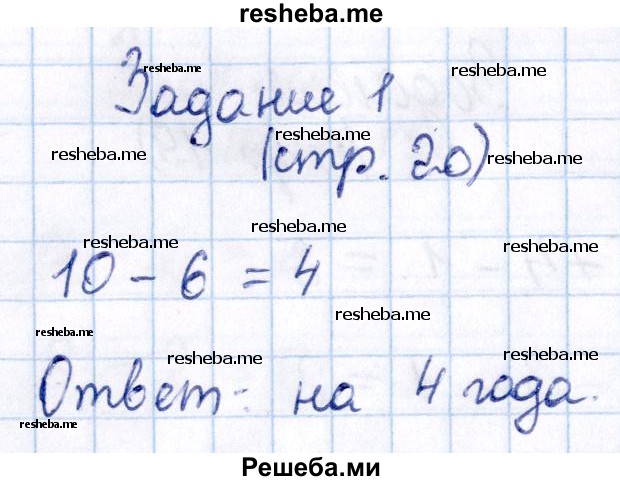 resheba.me
resheba.me
resheba.me
Задание 1
resheba.me
resheba.me
resheba.me
(стр. 20)
resheba.me
resheba.me
resheba.me
10 - 6 = 4
resheba.me
resheba.me
resheba.me
resheba.me
Ответ: на 4 года.
resheba.me
Решеба.ми